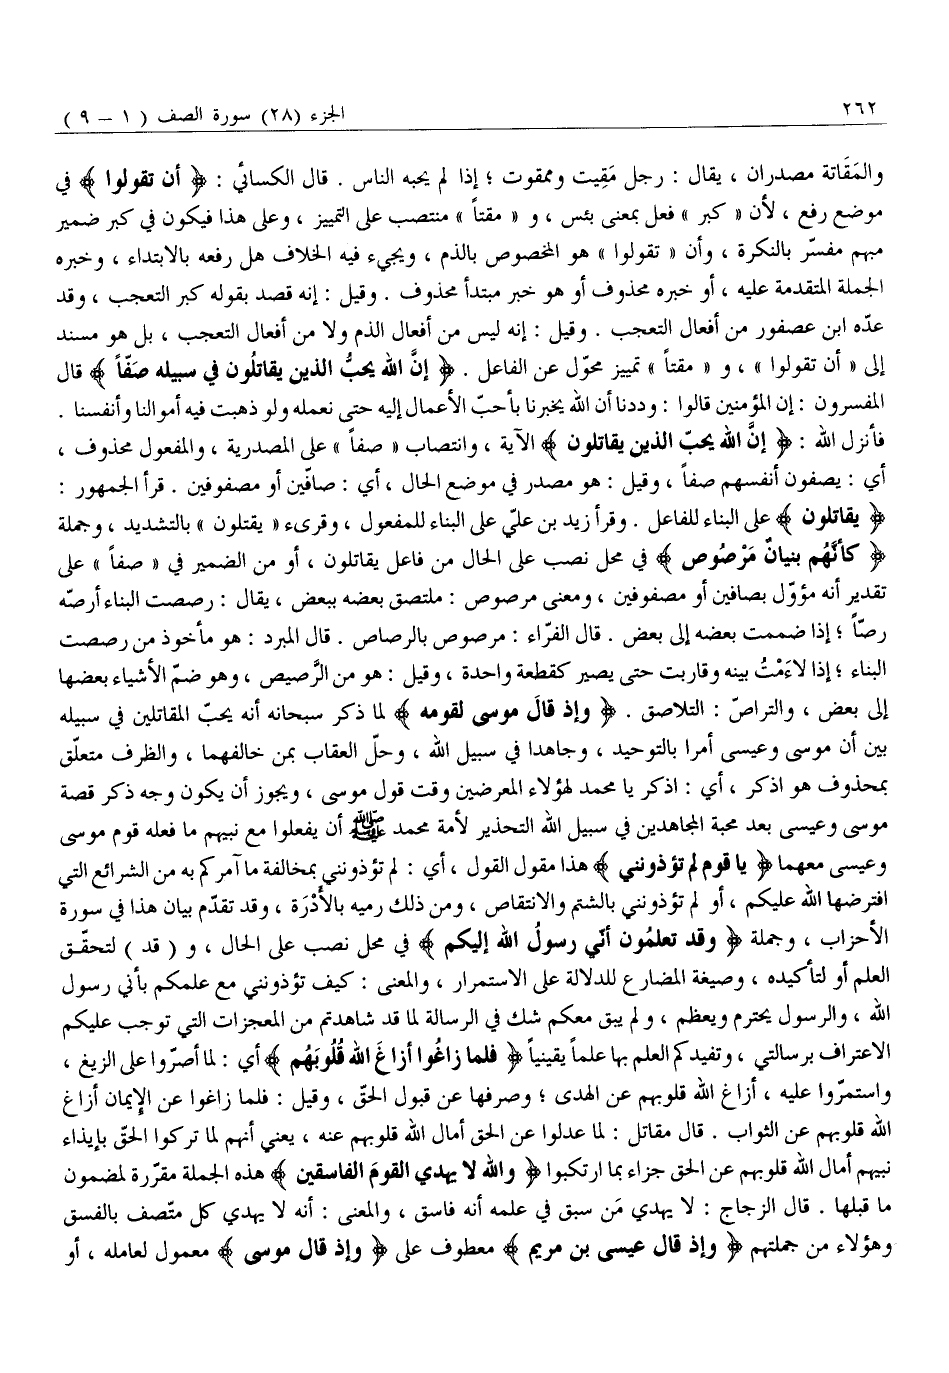 ٢٦٢
الجزء (٢٨) سورة الصف ( ١ – ٩ )
والمَقَاتة مصدران ، يقال : رجل مَقِيت وممقوت ؛ إذا لم يحبه الناس . قال الكسائي : ﴿ أن تقولوا ﴾ في
موضع رفع ، لأن « كبر » فعل بمعنى بئس ، و « مقتاً » منتصب على التمييز ، وعلى هذا فيكون في كبر ضمير
مبهم مفسّر بالنكرة ، وأن « تقولوا » هو المخصوص بالذم ، ويجيء فيه الخلاف هل رفعه بالابتداء ، وخبره
الجملة المتقدمة عليه ، أو خبره محذوف أو هو خبر مبتدأ محذوف . وقيل : إنه قصد بقوله كبر التعجب ، وقد
عدّه ابن عصفور من أفعال التعجب . وقيل : إنه ليس من أفعال الذم ولا من أفعال التعجب ، بل هو مسند
إلى « أن تقولوا » ، و « مقتاً » تمييز محوّل عن الفاعل . ﴿ إنَّ الله يحبُّ الذين يقاتلُون في سبيله صَفّاً ﴾ قال
المفسرون : إن المؤمنين قالوا : وددنا أن الله يخبرنا بأحبّ الأعمال إليه حتى نعمله ولو ذهبت فيه أموالنا وأنفسنا .
فأنزل الله : ﴿ إنَّ الله يحبّ الذين يقاتلون ﴾ الآية ، وانتصاب « صفاً » على المصدرية ، والمفعول محذوف ،
أي : يصفون أنفسهم صفاً ، وقيل : هو مصدر في موضع الحال ، أي : صافّين أو مصفوفين . قرأ الجمهور :
﴿ يقاتلون ﴾ على البناء للفاعل . وقرأ زيد بن عليّ على البناء للمفعول ، وقرىء « يقتلون » بالتشديد ، وجملة
﴿ كأنَّهُم بنيانٌ مَرْصُوص ﴾ في محل نصب على الحال من فاعل يقاتلون ، أو من الضمير في « صفاً » على
تقدير أنه مؤوّل بصافين أو مصفوفين ، ومعنى مرصوص : ملتصق بعضه ببعض ، يقال : رصصت البناء أرصّه
رصّاً ؛ إذا ضممت بعضه إلى بعض . قال الفرّاء : مرصوص بالرصاص . قال المبرد : هو مأخوذ من رصصت
البناء ؛ إذا لاءَمْتُ بينه وقاربت حتى يصير كقطعة واحدة ، وقيل : هو من الرَّصيص ، وهو ضمّ الأشياء بعضها
إلى بعض ، والتراصّ : التلاصق . ﴿ وإذ قالَ موسى لقومه ﴾ لما ذكر سبحانه أنه يحبّ المقاتلين في سبيله
بين أن موسى وعيسى أمرا بالتوحيد ، وجاهدا في سبيل الله ، وحلّ العقاب بمن خالفهما ، والظرف متعلّق
بمحذوف هو اذكر ، أي : اذكر يا محمد لهؤلاء المعرضين وقت قول موسى ، ويجوز أن يكون وجه ذكر قصة
موسى وعيسى بعد محبة المجاهدين في سبيل الله التحذير لأمة محمد ﷺ أن يفعلوا مع نبيهم ما فعله قوم موسى
وعيسى معهما ﴿ يا قوم لم تؤذونني ﴾ هذا مقول القول ، أي : لم تؤذونني بمخالفة ما آمركم به من الشرائع التي
افترضها الله عليكم ، أو لم تؤذونني بالشتم والانتقاص ، ومن ذلك رميه بالأُدْرَة ، وقد تقدّم بيان هذا في سورة
الأحزاب ، وجملة ﴿ وقد تعلمُون أنّي رسولُ الله إليكم ﴾ في محل نصب على الحال ، و ( قد ) لتحقّق
العلم أو لتأكيده ، وصيغة المضارع للدلالة على الاستمرار ، والمعنى : كيف تؤذونني مع علمكم بأني رسول
الله ، والرسول يحترم ويعظم ، ولم يبق معكم شك في الرسالة لما قد شاهدتم من المعجزات التي توجب عليكم
الاعتراف برسالتي ، وتفيدكم العلم بها علماً يقينياً ﴿ فلما زاغُوا أزاغَ الله قُلُوبَهُم ﴾ أي : لما أصرّوا على الزيغ ،
واستمرّوا عليه ، أزاغ الله قلوبهم عن الهدى ؛ وصرفها عن قبول الحقّ ، وقيل : فلما زاغوا عن الإيمان أزاغ
الله قلوبهم عن الثواب . قال مقاتل : لما عدلوا عن الحق أمال الله قلوبهم عنه ، يعني أنهم لما تركوا الحقّ بإيذاء
نبيهم أمال الله قلوبهم عن الحق جزاء بما ارتكبوا ﴿ والله لا يهدي القومَ الفاسقين ﴾ هذه الجملة مقرّرة لمضمون
ما قبلها . قال الزجاج : لا يهدي مَن سبق في علمه أنه فاسق ، والمعنى : أنه لا يهدي كل متّصف بالفسق
وهؤلاء من جملتهم ﴿ وإذ قال عيسى بن مريم ﴾ معطوف على ﴿ وإذ قال موسى ﴾ معمول لعامله ، أو